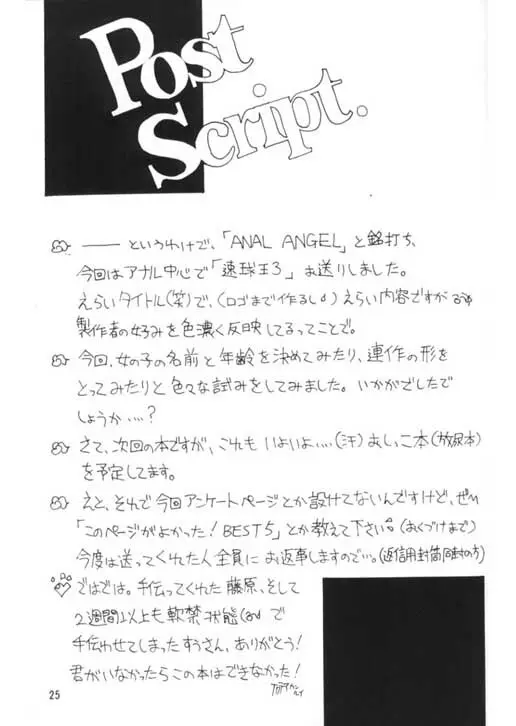 Post
Script.
――というわけで、「ANAL ANGEL」と銘打ち、
今回はアナル中心で「速球王3」お送りしました。
えらいタイトル(笑)で、(ロゴまで作るし♂)えらい内容ですが
製作者の好みを色濃く反映してるってことで。
今回、女の子の名前と年齢を決めてみたり、連作の形を
とってみたりと色々な試みをしてみました。いかがでしたで
しょうか‥‥?
さて、次回の本ですが、これもいよいよ‥‥(汗)おしっこ本(放尿本)
を予定してます。
えと、それで今回アンケートページとか設けてないんですけど、ぜひ
「このページがよかった!BEST5」とか教えて下さい。(おくづけまで)
今度は送ってくれた人全員にお返事しますので‥。(返信用封筒同封の方)
ではでは。手伝ってくれた藤原、そして
2週間以上も軟禁状態で
手伝わせてしまったすうさん、ありがとう!
君がいなかったらこの本はできなかった!
25